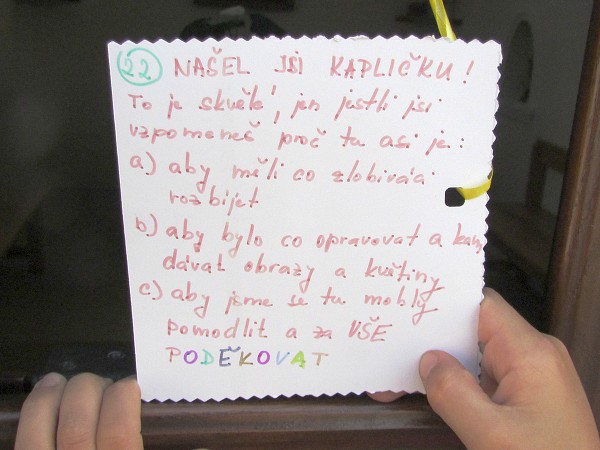 22 NAŠEL JSI KAPLIČKU!
To je skvělé, jen jestli jsi
vzpomeneš proč tu asi je:
a) aby měli co zlobiváci
rozbíjet
b) aby bylo co opravovat a kam
dávat obrazy a kuštiny
c) aby jsme se tu mohly
pomodlit a za VŠE
PODĚKOVAT